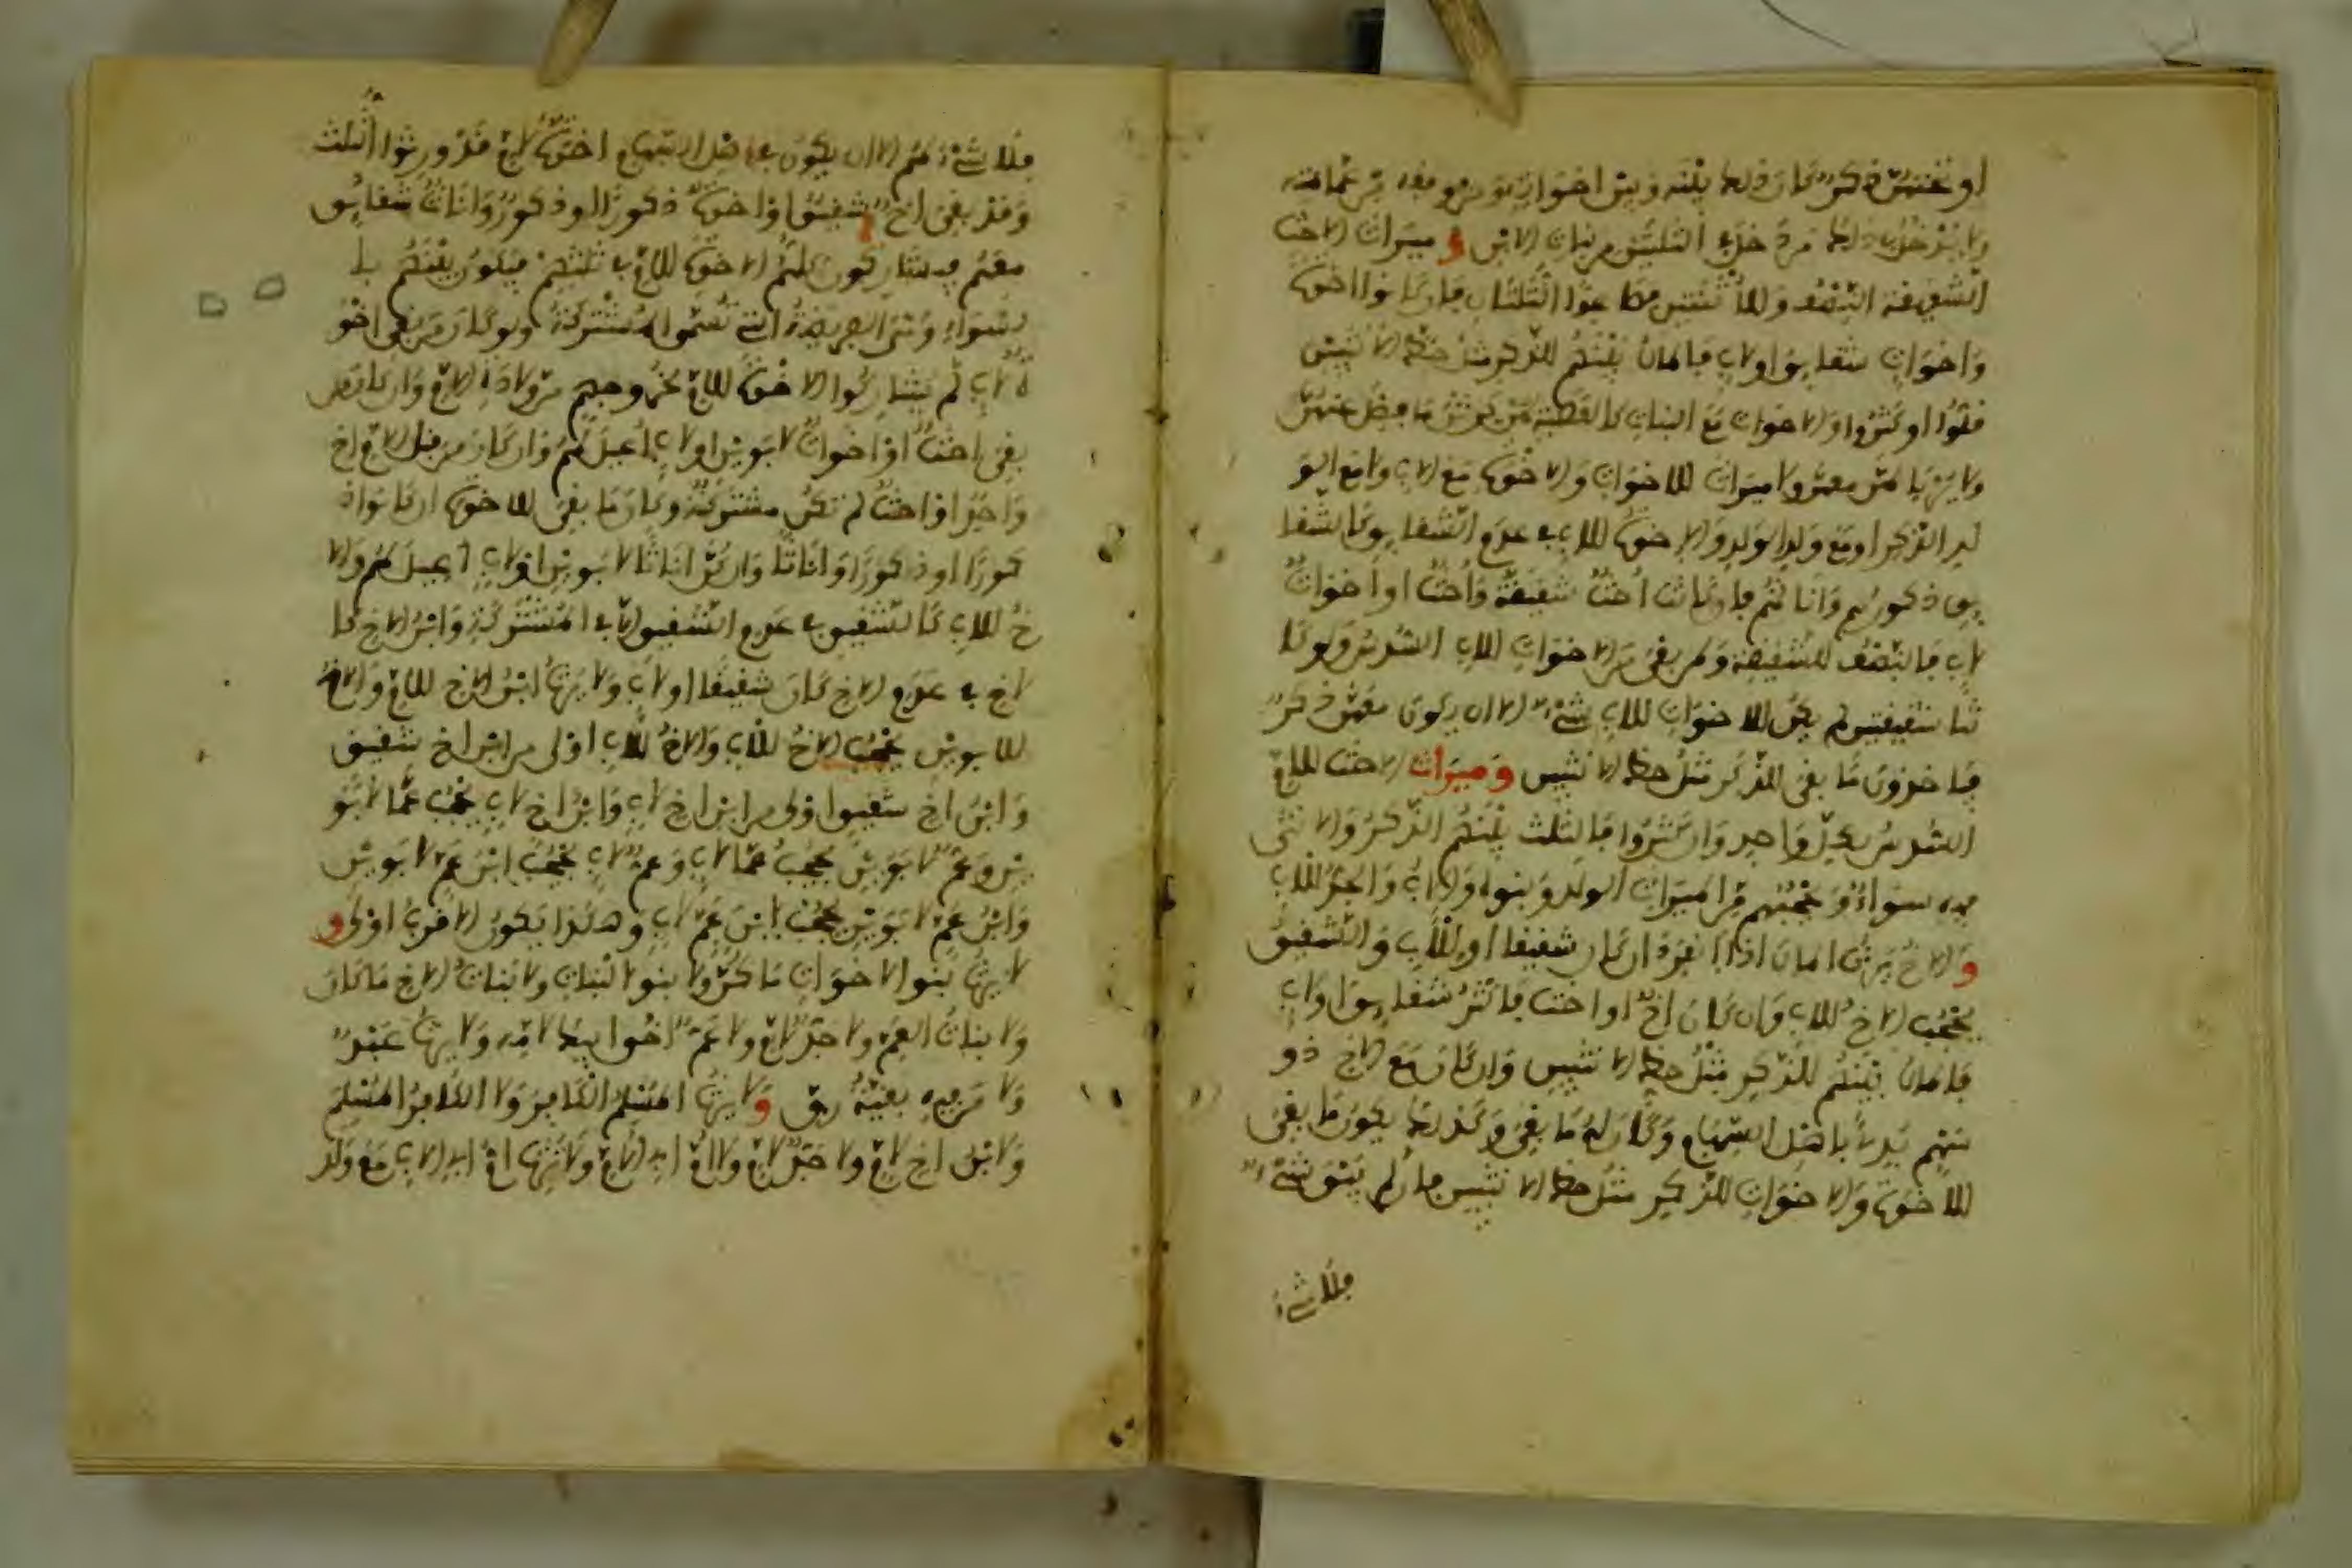 او تحتهن ذكر كان ذلك بينه وبين اخواته ومن فوقه من عماته
ولا يدخل في ذلك من دخل في الثلثين من بنات الابن وميراث الاخت
الشقيقة النصف وللاثنتين فصاعدا الثلثان فان كانوا اخوة
واخوات شقايق او لاب فالمال بينهم للذكر مثل حظ الانثيين
قلوا او كثروا والاخوات مع البنات كالعصبة لهن يرثن ما فضل عنهن
ولا يربا لهن معهن ولا ميراث للاخوات والاخوة مع الاب ولا مع الو
لد الذكر او مع ولد الولد والاخوة للاب في عدم الشقايق كالشقا
يق ذكورهم واناثهم فان كانت اخت شقيقة واخت او اخوات
لاب فالنصف للشقيقة ولمن بقي من الاخوات للاب السدس ولو كا
نتا شقيقتين لم يكن للاخوات للاب شيء الا ان يكون معهن ذكر
فياخذون ما بقي للذكر مثل حظ الانثيين وميراث الاخت للام
السدس لكل واحد وان كثروا فالثلث بينهم الذكر والانثى
فيه سواء ويحجبهم من الميراث الولد وبنوه والاب والجد للاب
والاخ يرث المال اذا انفرد ان كان شقيقا او للاب والشقيق
يحجب الاخ للاب وان كان اخ او اخت فاكثر شقايق او لاب
فالمال بينهم للذكر مثل حظ الانثيين وان كان مع الاخ ذو
سهم بدئ باهل السهام وكان له ما بقي وكذلك يكون ما بقي
للاخوة والاخوات للذكر مثل حظ الانثيين فان لم يبق شيء
فلا شيء
فلا شيء لهم الا ان يكون في اهل السهام اخوة لام قد ورثوا الثلث
وقد بقي اخ شقيق او اخوة ذكورا او ذكور واناث شقايق
معهم فيشاركون كلهم الاخوة للام في ثلثهم فيكون بينهم با
لسواء وهي الفريضة التي تسمى المشتركة ولو كان من بقي اخو
ة لاب لم يشاركوا الاخوة للام لخروجهم من ولادة الام وان كان من
بقي اختا او اخوات لابوين او لاب اعيل لهم وان كان من قبل الام اخ
واحد او اخت لم تكن مشتركة وكان ما بقي للاخوة ان كانوا ذ
كورا او ذكورا واناثا وان كن اناثا لابوين او لاب اعيل لهم والا
خ للاب كالشقيق في عدم الشقيق الا في المشتركة وابن الاخ كا
لاخ في عدم الاخ كان شقيقا او لاب ولا يرث ابن الاخ للام والاخ
للابوين يحجب الاخ للاب والاخ للاب اولى من ابن اخ شقيق
وابن اخ شقيق اولى من ابن اخ لاب وابن اخ لاب يحجب عما لابو
ين وعم لابوين يحجب عما لاب وعم لاب يحجب ابن عم لابوين
وابن عم لابوين يحجب ابن عم لاب وهكذا يكون الاقرب اولى و
لا يرث بنو الاخوات ما كن ولا بنوا البنات ولا بنات الاخ ما كان
ولا بنات العم ولا جد لام ولا عم اخوا ابيك لامه ولا يرث عبد
ولا من فيه بقية رق ولا يرث المسلم الكافر ولا الكافر المسلم
ولا ابن اخ لام ولا جد لام ولا ام ابي الام ولا ترث ام ابي الاب مع ولد